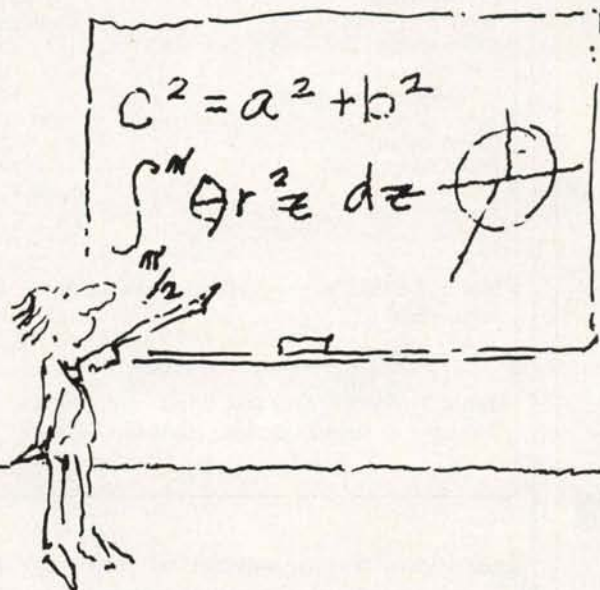 c² = a² + b²
∫_{π/2}^{π} θr²z dz